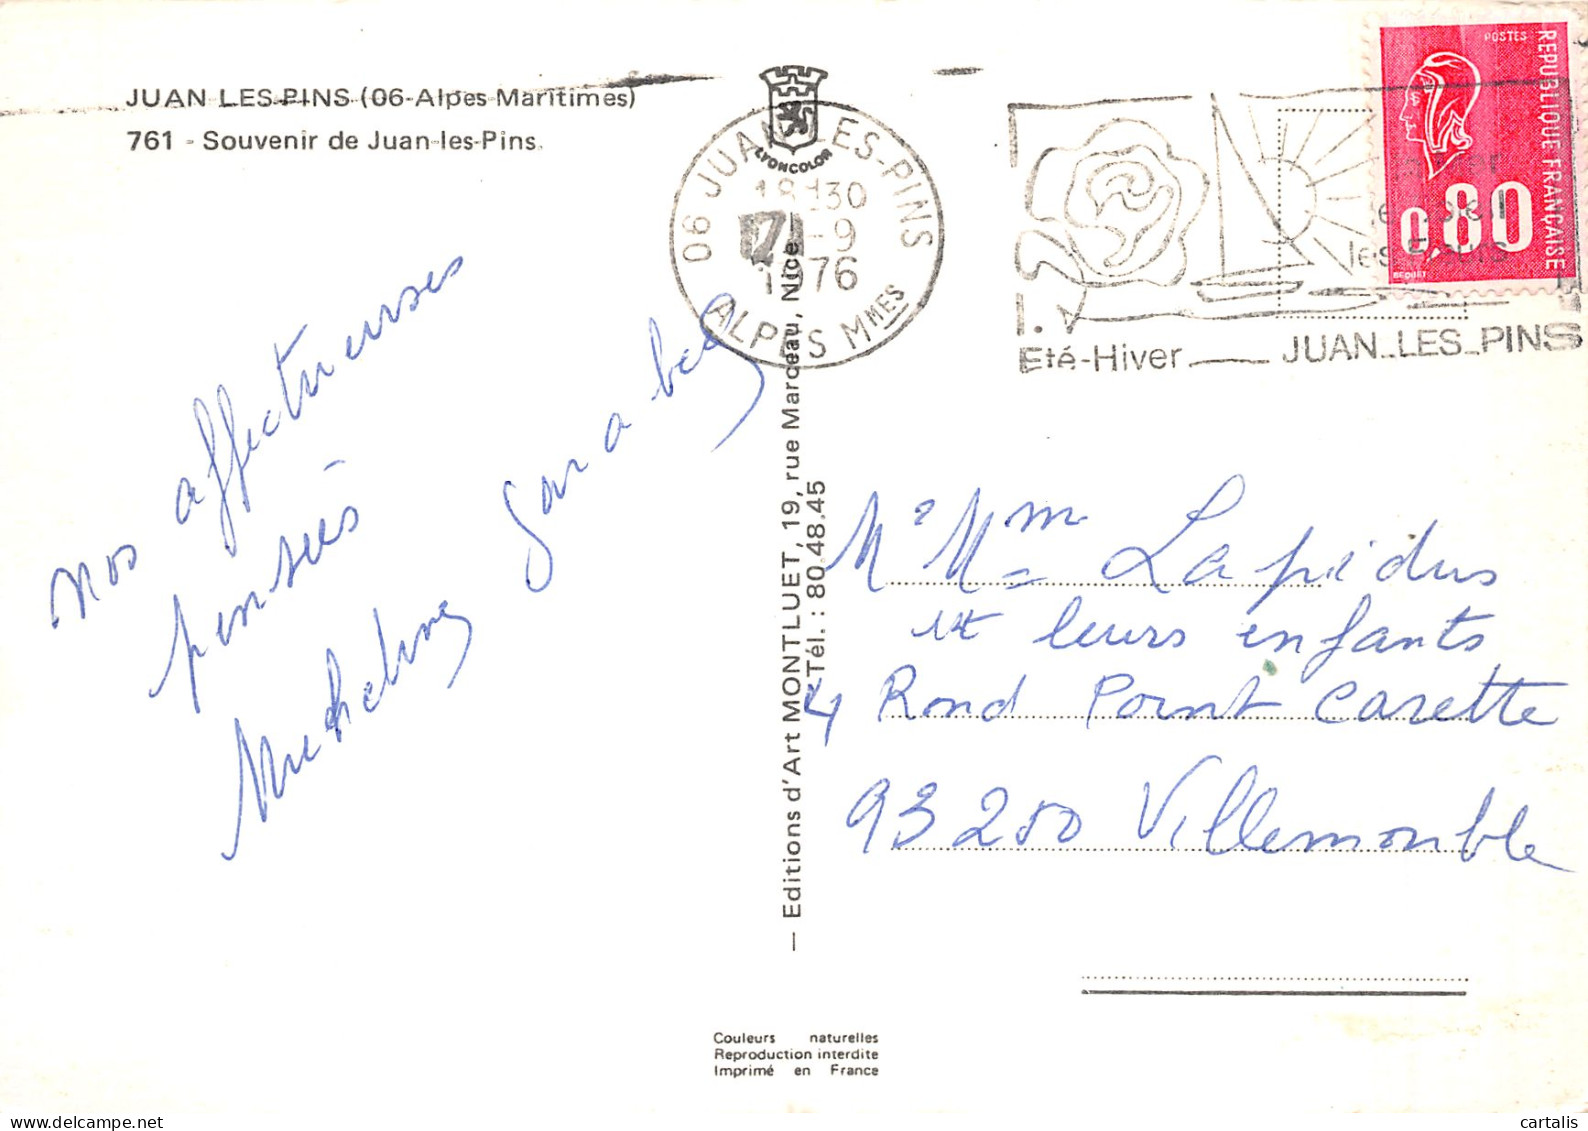 JUAN LES PINS (06-Alpes Maritimes)
761 - Souvenir de Juan-les-Pins.
LYONCOLOR
06 JUAN-LES-PINS
18H30
-9
1976
ALPES MMES
Eté-Hiver JUAN-LES-PINS
POSTES
REPUBLIQUE FRANÇAISE
0,80
BEQUET
nos affectueuses
pensées
Micheline
— Editions d'Art MONTLUET, 19, rue Marceau, Nice
Tél. : 80.48.45
M. Mme Lapidus
et leurs enfants
4 Rond Point Carette
93250 Villemomble
Couleurs naturelles
Reproduction interdite
Imprimé en France
cartalis